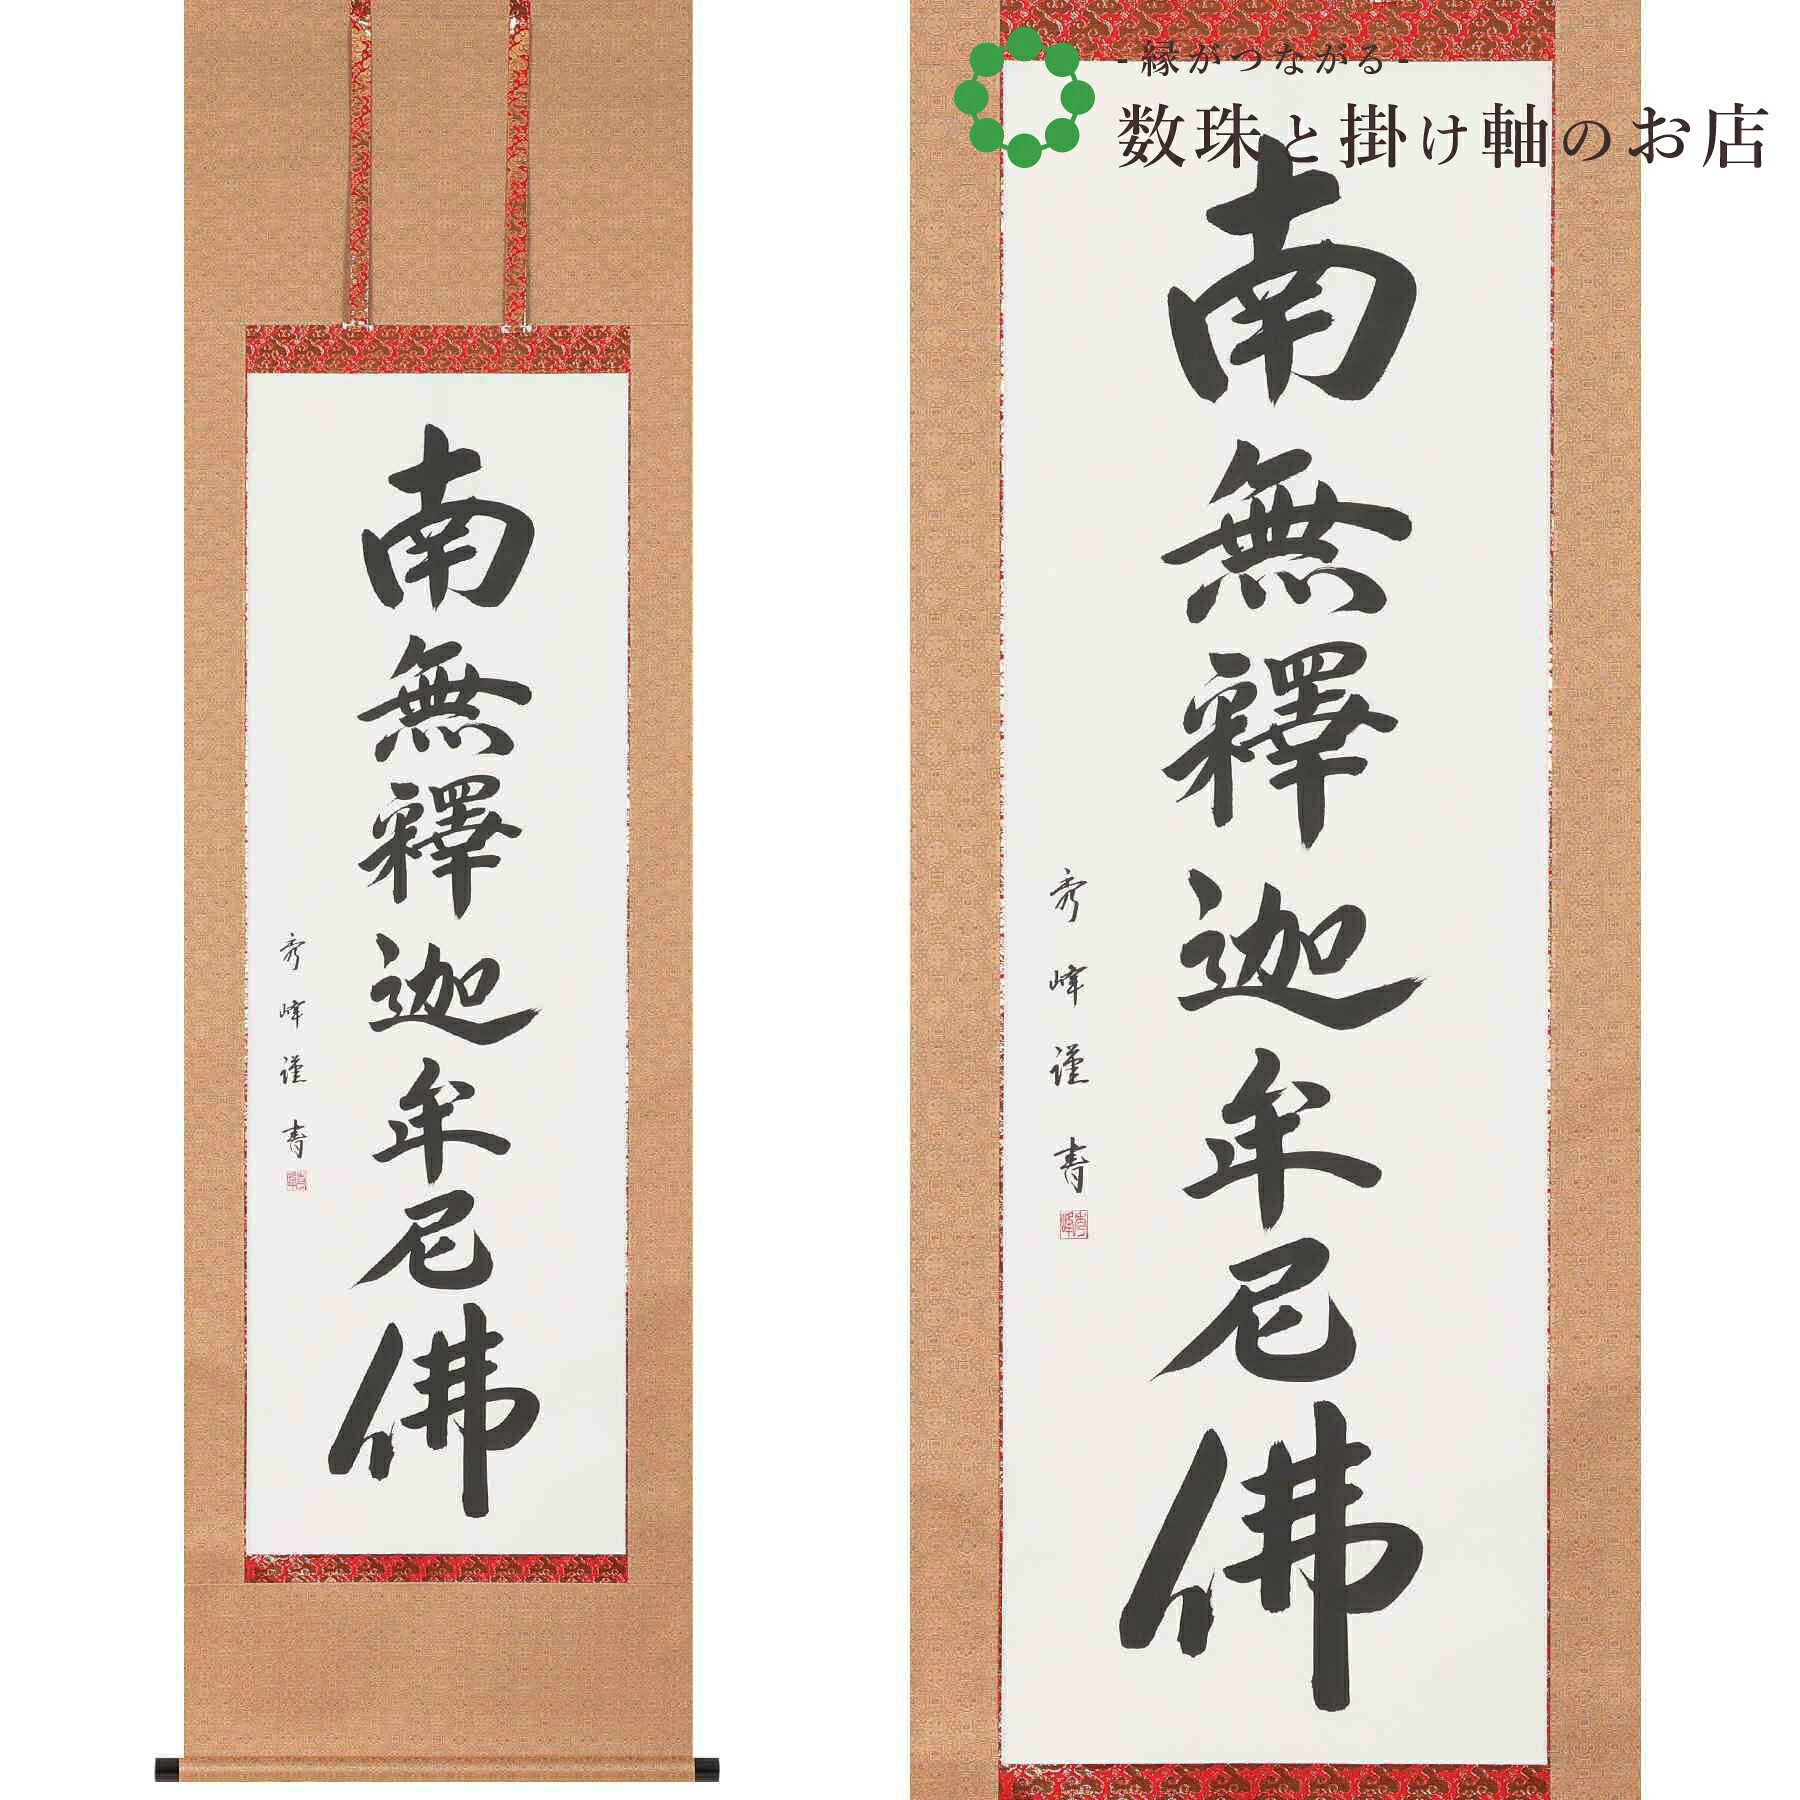 -縁がつながる-
数珠と掛け軸のお店
南無釋迦牟尼佛
秀峰謹書
南無釋迦牟尼佛
秀峰謹書
秀峰